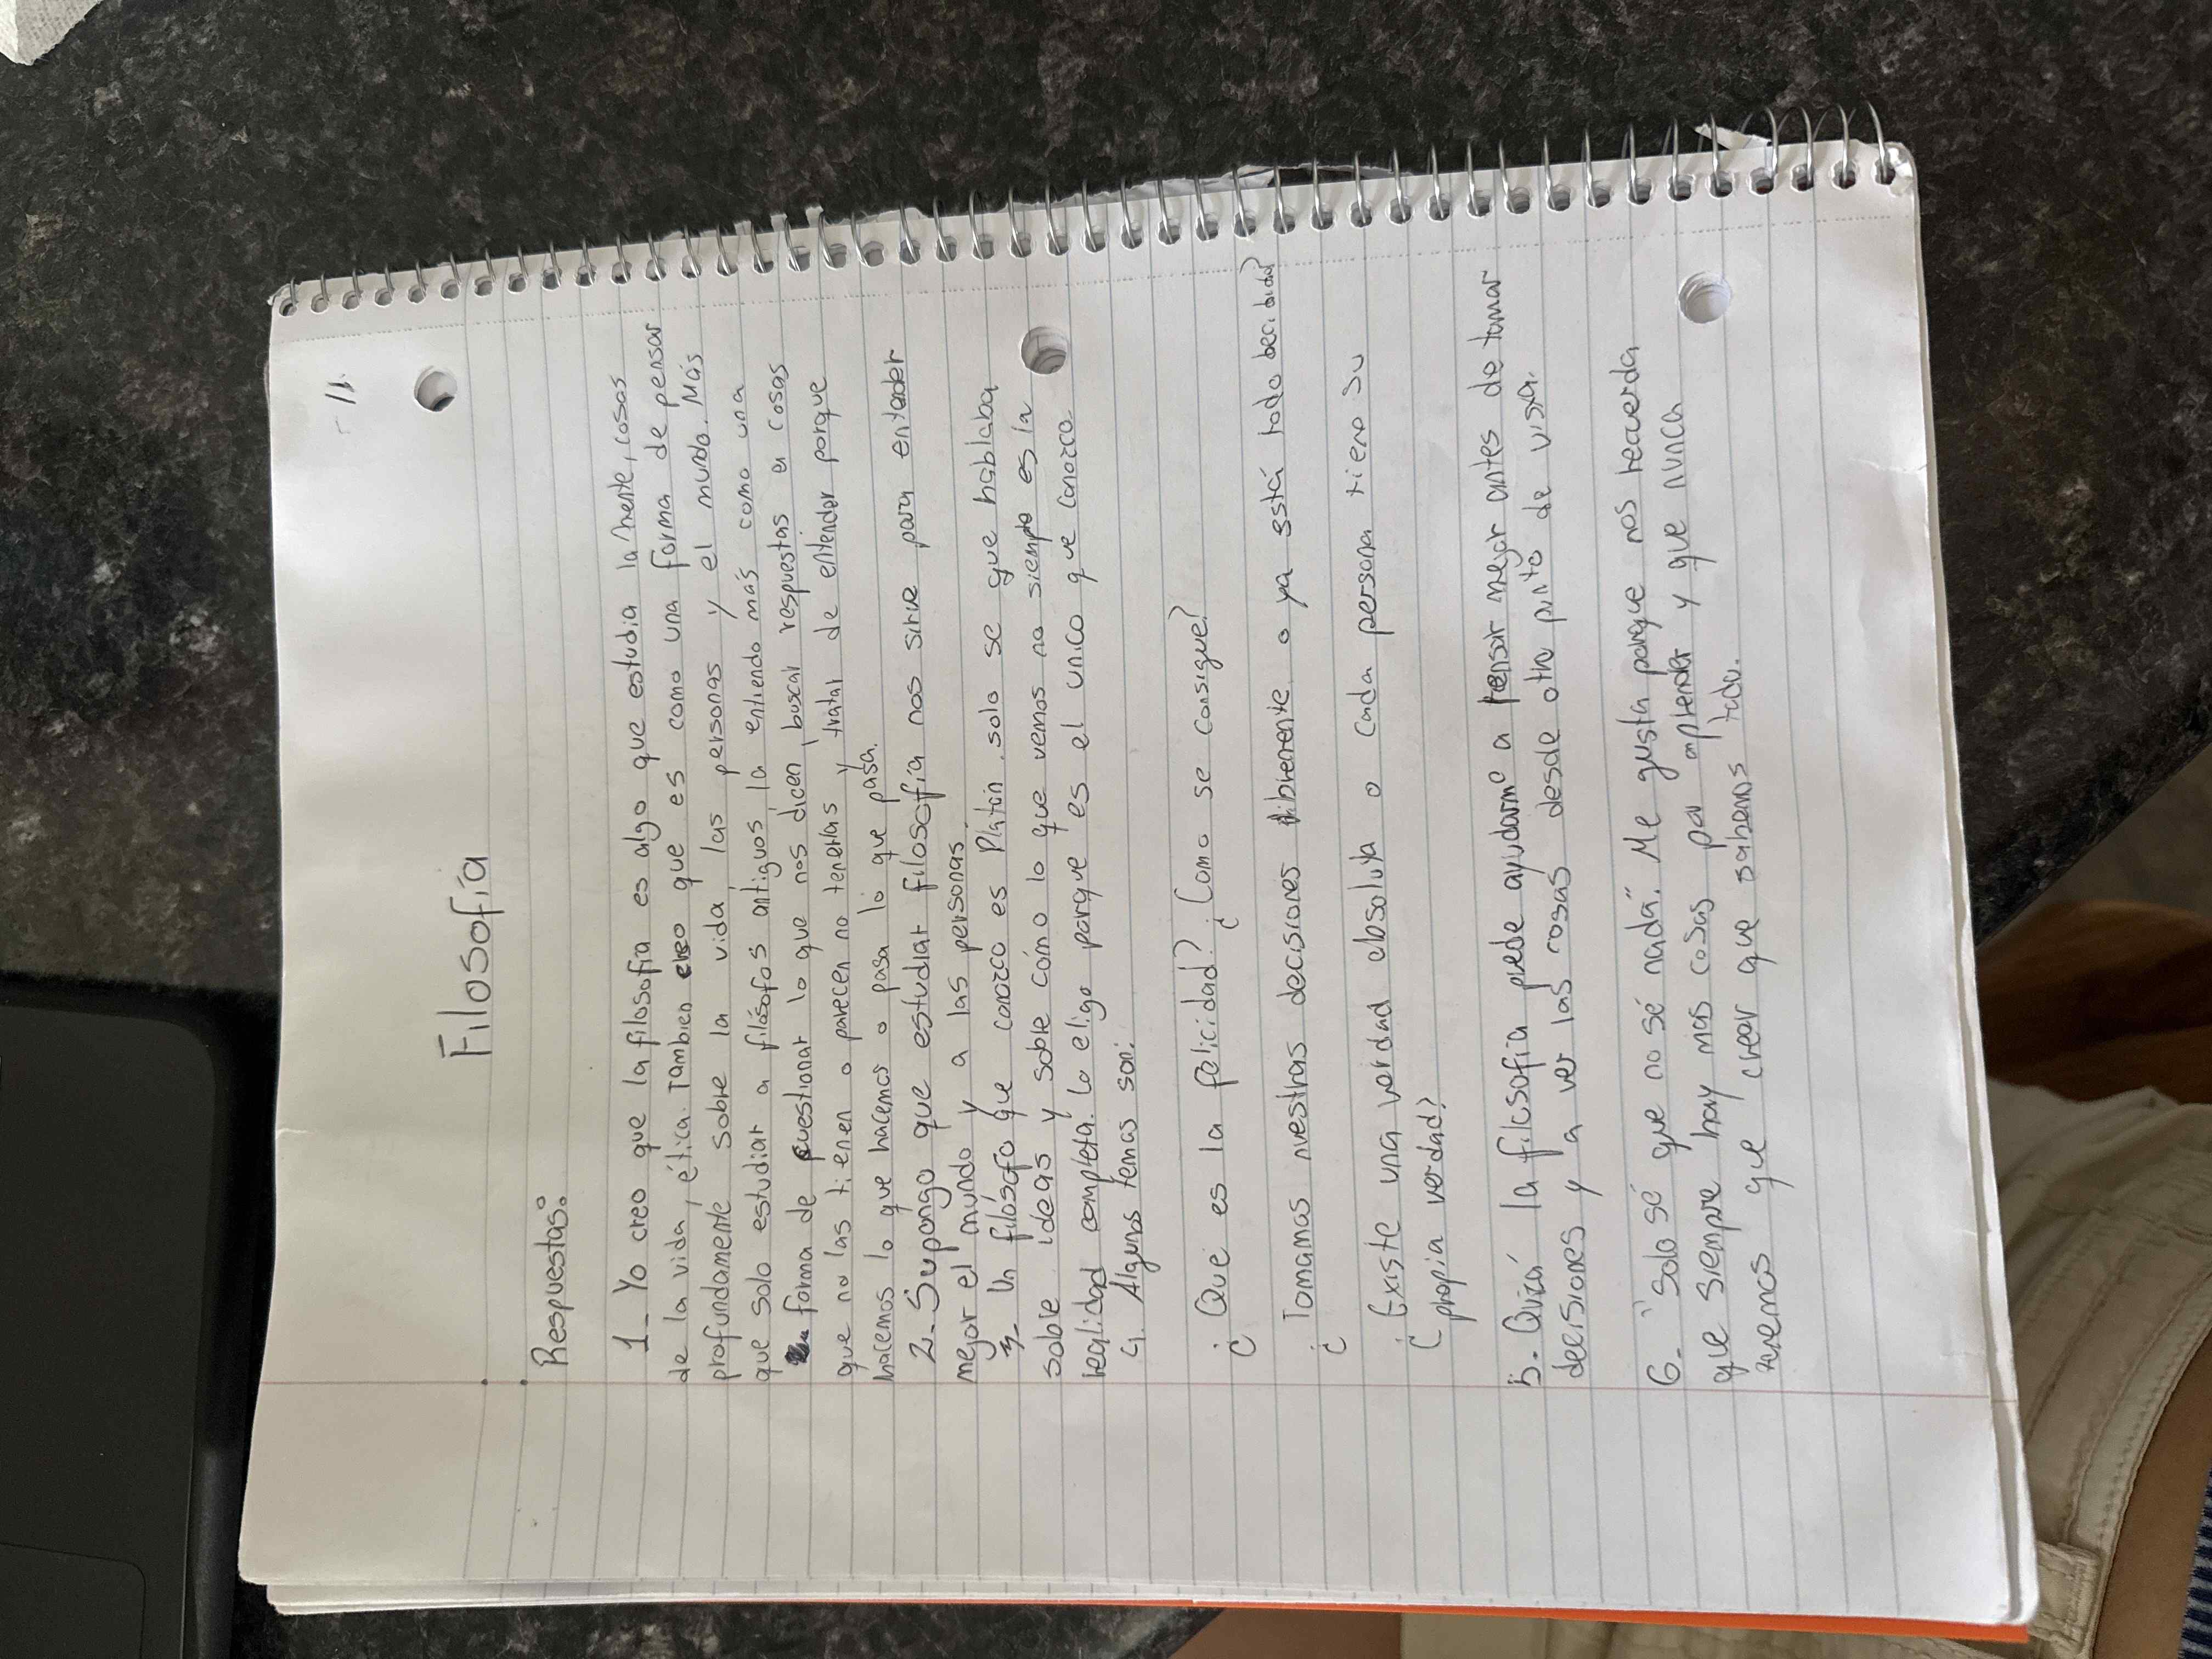 Filosofía
Respuestas:
1- Yo creo que la filosofía es algo que estudia la mente, cosas
de la vida, ética. Tambien creo que es como una forma de pensar
profundamente sobre la vida, las personas y el mundo. Más
que solo estudiar a filósofos antiguos la entiendo más como una
forma de cuestionar lo que nos dicen, buscar respuestas a cosas
que no las tienen o parecen no tenerlas y tratar de entender porque
hacemos lo que hacemos o pasa lo que pasa.
2- Supongo que estudiar filosofía nos sirve para entender
mejor el mundo y a las personas.
3- Un filósofo que conozco es Platón. solo se que hablaba
sobre ideas y sobre cómo lo que vemos no siempre es la
realidad completa. Lo eligo porque es el unico que conozco
4. Algunos temas son:
¿Que es la felicidad? ¿Como se consigue?
¿Tomamos nuestras decisiones libremente o ya está todo decidido?
¿Existe una verdad absoluta o cada persona tiene su
propia verdad?
5- Quizá la filosofía puede ayudarme a pensar mejor antes de tomar
decisiones y a ver las cosas desde otro punto de vista.
6- "Solo sé que no sé nada". Me gusta porque nos recuerda
que siempre hay mas cosas por aprender y que nunca
tenemos que creer que sabemos todo.